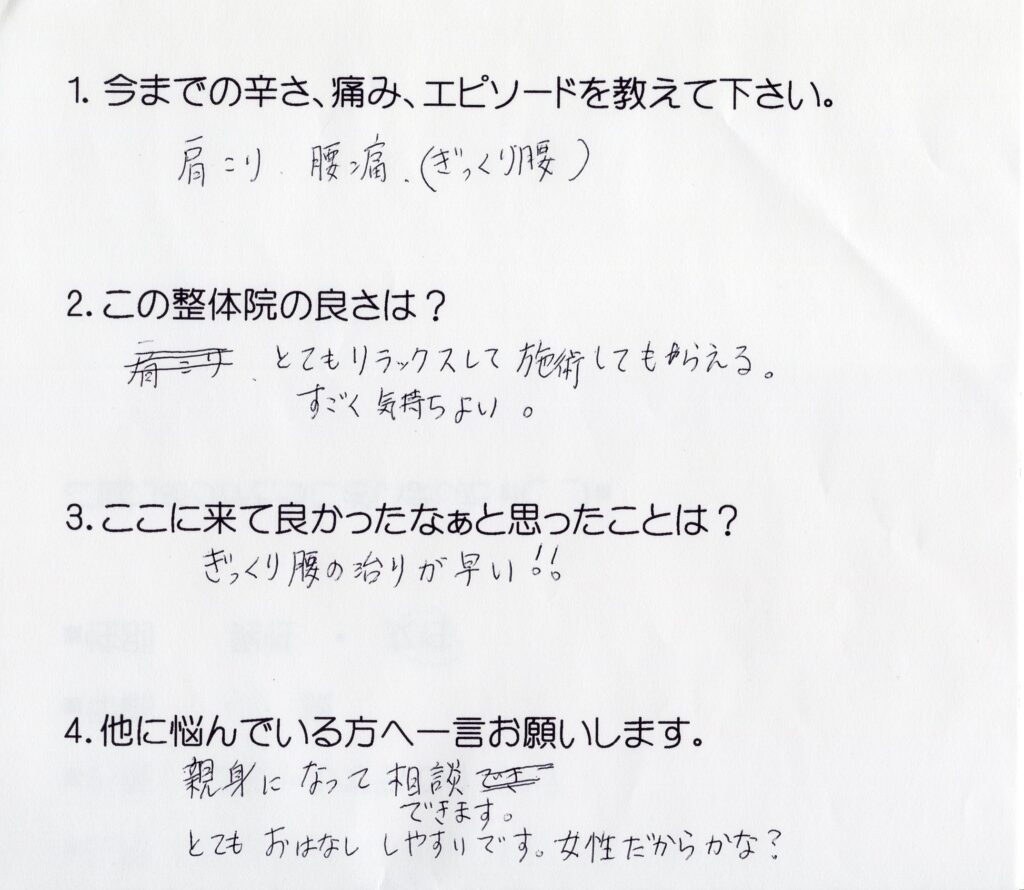 1. 今までの辛さ、痛み、エピソードを教えて下さい。
肩こり. 腰痛.(ぎっくり腰)
2. この整体院の良さは？
肩こり. とてもリラックスして施術してもらえる。
すごく気持ちよい。
3. ここに来て良かったなぁと思ったことは？
ぎっくり腰の治りが早い!!
4. 他に悩んでいる方へ一言お願いします。
親身になって相談
できます。
とてもおはなししやすいです。女性だからかな？